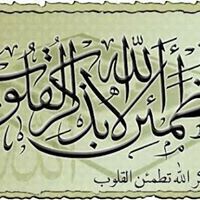 ألا بذكر الله تطمئن القلوب
كر الله تطمئن القلوب